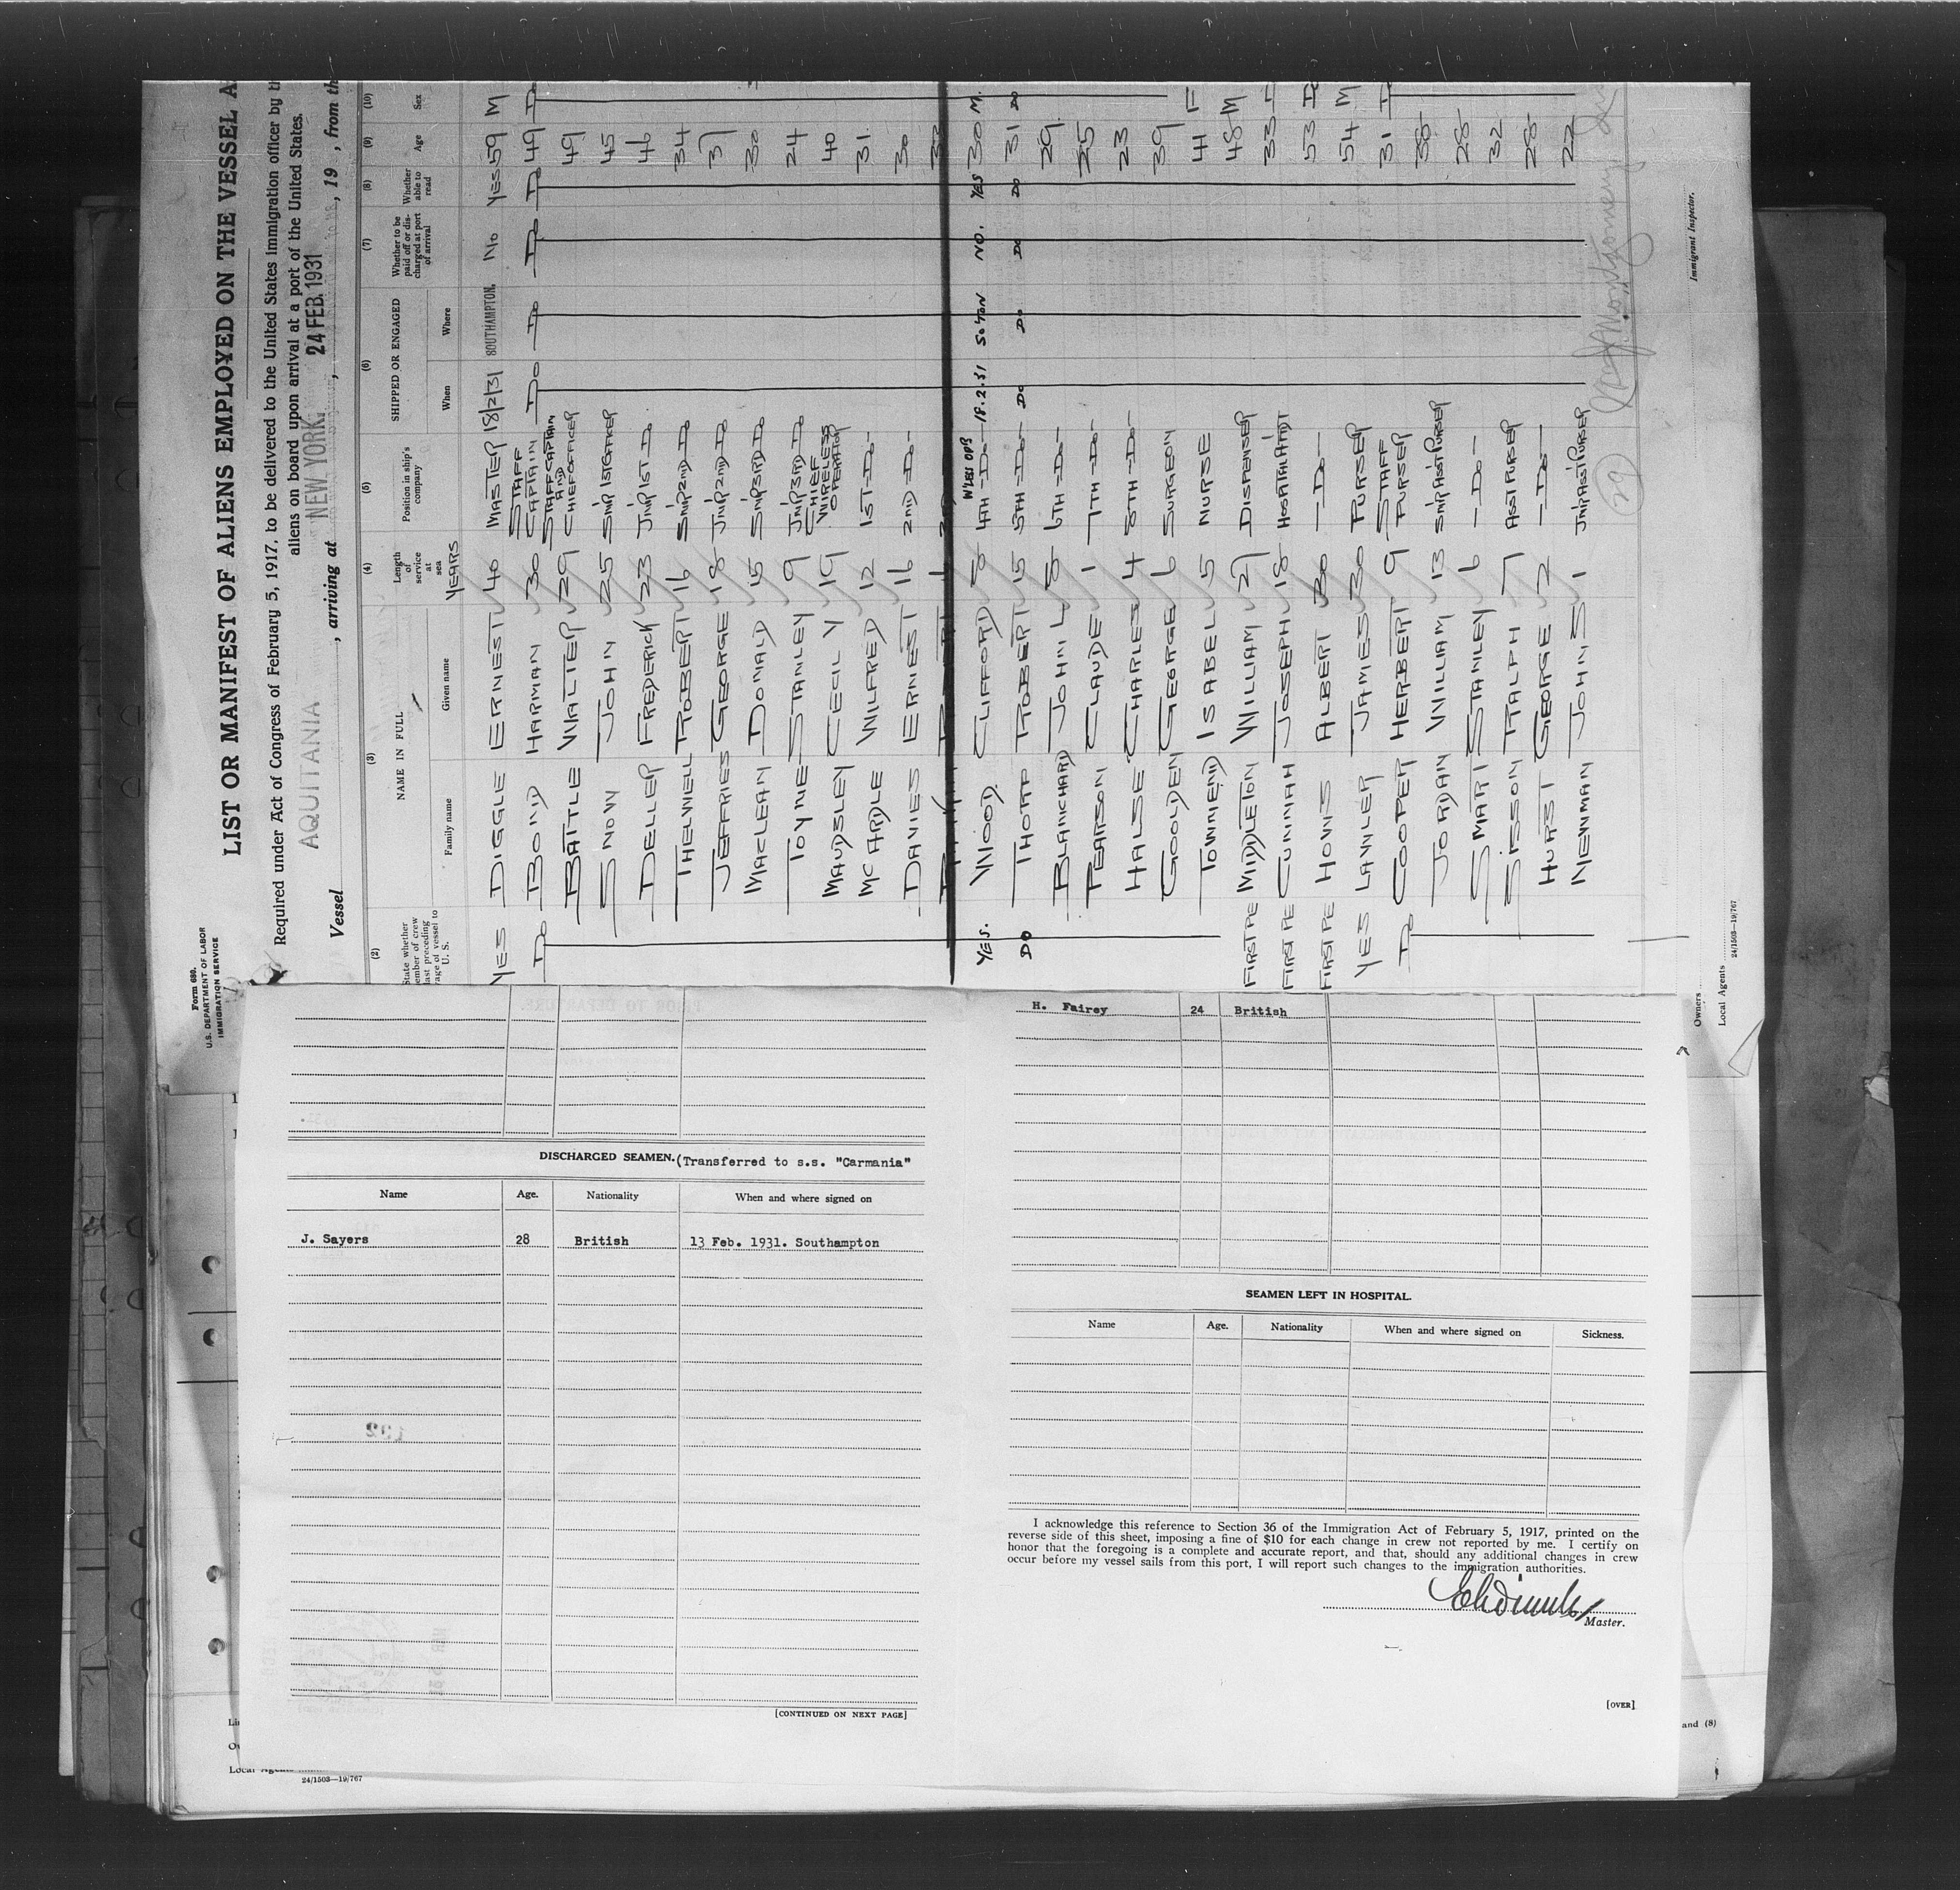 Form 680.
U.S. DEPARTMENT OF LABOR
IMMIGRATION SERVICE
LIST OR MANIFEST OF ALIENS EMPLOYED ON THE VESSEL A
Required under Act of Congress of February 5, 1917, to be delivered to the United States immigration officer by th
aliens on board upon arrival at a port of the United States.
Vessel AQUITANIA , arriving at NEW YORK. , 24 FEB. 1931 , 19 , from th
(2) (3) (4) (5) (6) (7) (8) (9) (10)
State whether
ember of crew
last preceding
yage of vessel to
U. S.
NAME IN FULL
Family name Given name
Length of service at sea
YEARS
Position in ship's company
SHIPPED OR ENGAGED
When Where
Whether to be paid off or discharged at port of arrival
Whether able to read
Age
Sex
YES DIGGLE ERNEST 40 MASTER 18/2/31 SOUTHAMPTON. NO YES 59 M
DO BOND HARMAN 30 STAFF CAPTAIN DO DO DO DO 49 D
BATTLE WALTER 29 STAFF CAPTAIN AND CHIEF OFFICER 49
SNOW JOHN 25 SNR 1ST OFFICER 45
DELLER FREDERICK 23 JNR 1ST DO 46
THELWELL ROBERT 16 SNR 2ND DO 34
JEFFRIES GEORGE 18 JNR 2ND DO 37
MACLEAN DONALD 15 SNR 3RD DO 30
TOYNE STANLEY 9 JNR 3RD DO 24
MAUDSLEY CECIL V 19 CHIEF WIRELESS OPERATOR 40
MCARDLE WILFRED 12 1ST -DO- 31
DAVIES ERNEST 16 2ND -DO- 30
YES. WOOD CLIFFORD 8 W'LESS OPR 4TH -DO- 18.2.31 SO'TON NO. YES 30 M.
DO THORP ROBERT 15 5TH -DO- DO DO DO DO 31 DO
BLANCHARD JOHN L 8 6TH -DO- 29
PEARSON CLAUDE 1 7TH -DO- 25
HALSE CHARLES 4 8TH -DO- 23
GOOLDEN GEORGE 6 SURGEON 39
TOWNEND ISABEL 5 NURSE 41 F
FIRST PE MIDDLETON WILLIAM 27 DISPENSER 48 M
FIRST PE CUNNAH JOSEPH 18 HOSPITAL ATTDT 33
FIRST PE HOWES ALBERT 30 -DO- 53
YES LAWLER JAMES 30 PURSER 54 M
DO COOPER HERBERT 9 STAFF PURSER 31 D
JORDAN WILLIAM 13 SNR ASST PURSER 38
SMART STANLEY 6 -DO- 28
SISSON RALPH 7 ASST PURSER 32
HURST GEORGE 2 -DO- 28
NEWMAN JOHN S 1 JNR ASST PURSER 22
29
Montgomery
Immigrant Inspector.
Owners
Local Agents
24/1503—19/767
DISCHARGED SEAMEN. (Transferred to s.s. "Carmania"
Name Age. Nationality When and where signed on
J. Sayers 28 British 13 Feb. 1931. Southampton
[CONTINUED ON NEXT PAGE]
H. Fairey 24 British
SEAMEN LEFT IN HOSPITAL.
Name Age. Nationality When and where signed on Sickness.
I acknowledge this reference to Section 36 of the Immigration Act of February 5, 1917, printed on the
reverse side of this sheet, imposing a fine of $10 for each change in crew not reported by me. I certify on
honor that the foregoing is a complete and accurate report, and that, should any additional changes in crew
occur before my vessel sails from this port, I will report such changes to the immigration authorities.
Master.
[OVER]
and (8)
Local Agents
24/1503—19/767